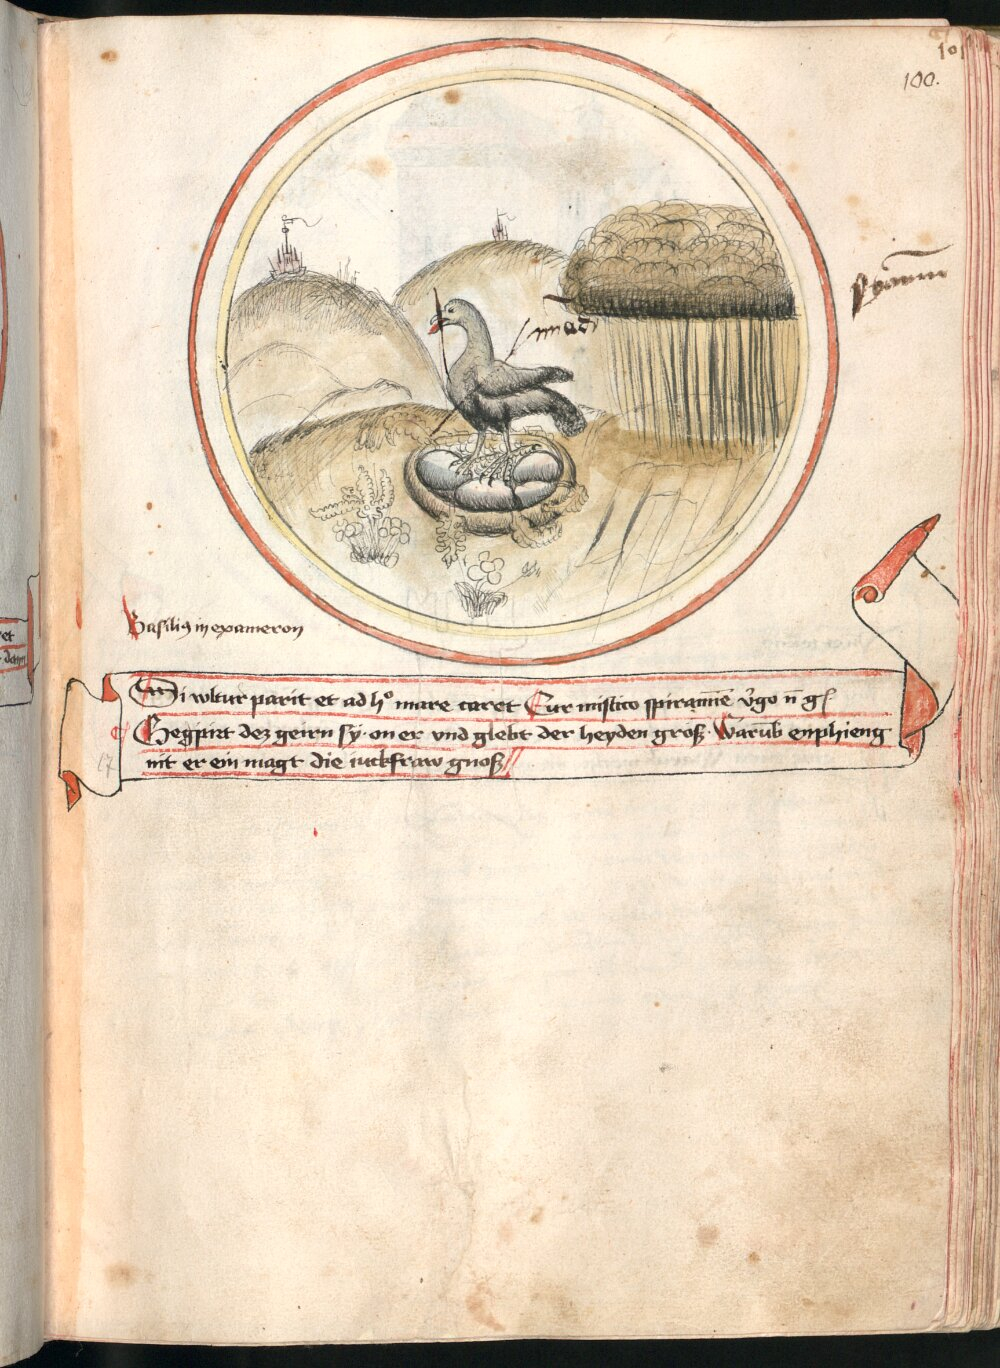 101
100.
Basiliꝰ in exameron
Si wltur parit et ad hᵒ mare caret Cur mistico spiramīe v̓go n̄ gͬ
Gegpirt dez geirn sy · on er vnd glebt der heyden groß · Warūb enphieng
nit er ein magt die iuckfraw gnoß
17